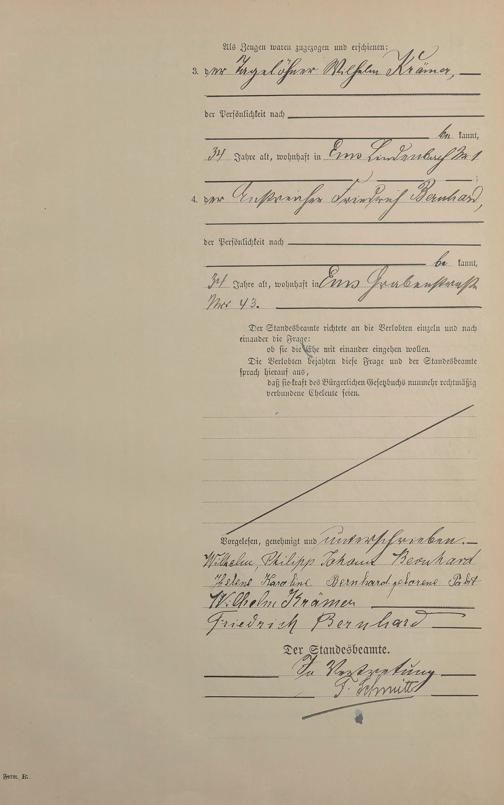 Als Zeugen waren zugezogen und erschienen:
3. der Tagelöhner Wilhelm Krämer,
der Persönlichkeit nach
be kannt,
34 Jahre alt, wohnhaft in Ems Lindenbach No 1
4. der Anstreicher Friedrich Bernhard,
der Persönlichkeit nach
be kannt,
34 Jahre alt, wohnhaft in Ems Grabenstraße
Nro 43.
Der Standesbeamte richtete an die Verlobten einzeln und nach
einander die Frage:
ob sie die Ehe mit einander eingehen wollen.
Die Verlobten bejahten diese Frage und der Standesbeamte
sprach hierauf aus,
daß sie kraft des Bürgerlichen Gesetzbuchs nunmehr rechtmäßig
verbundene Eheleute seien.
Vorgelesen, genehmigt und unterschrieben.
Wilhelm, Philipp Johann Bernhard
Helene Karoline Bernhard geborene
Wilhelm Krämer
Friedrich Bernhard
Der Standesbeamte.
In Vertretung
Schmitt
Form. B.